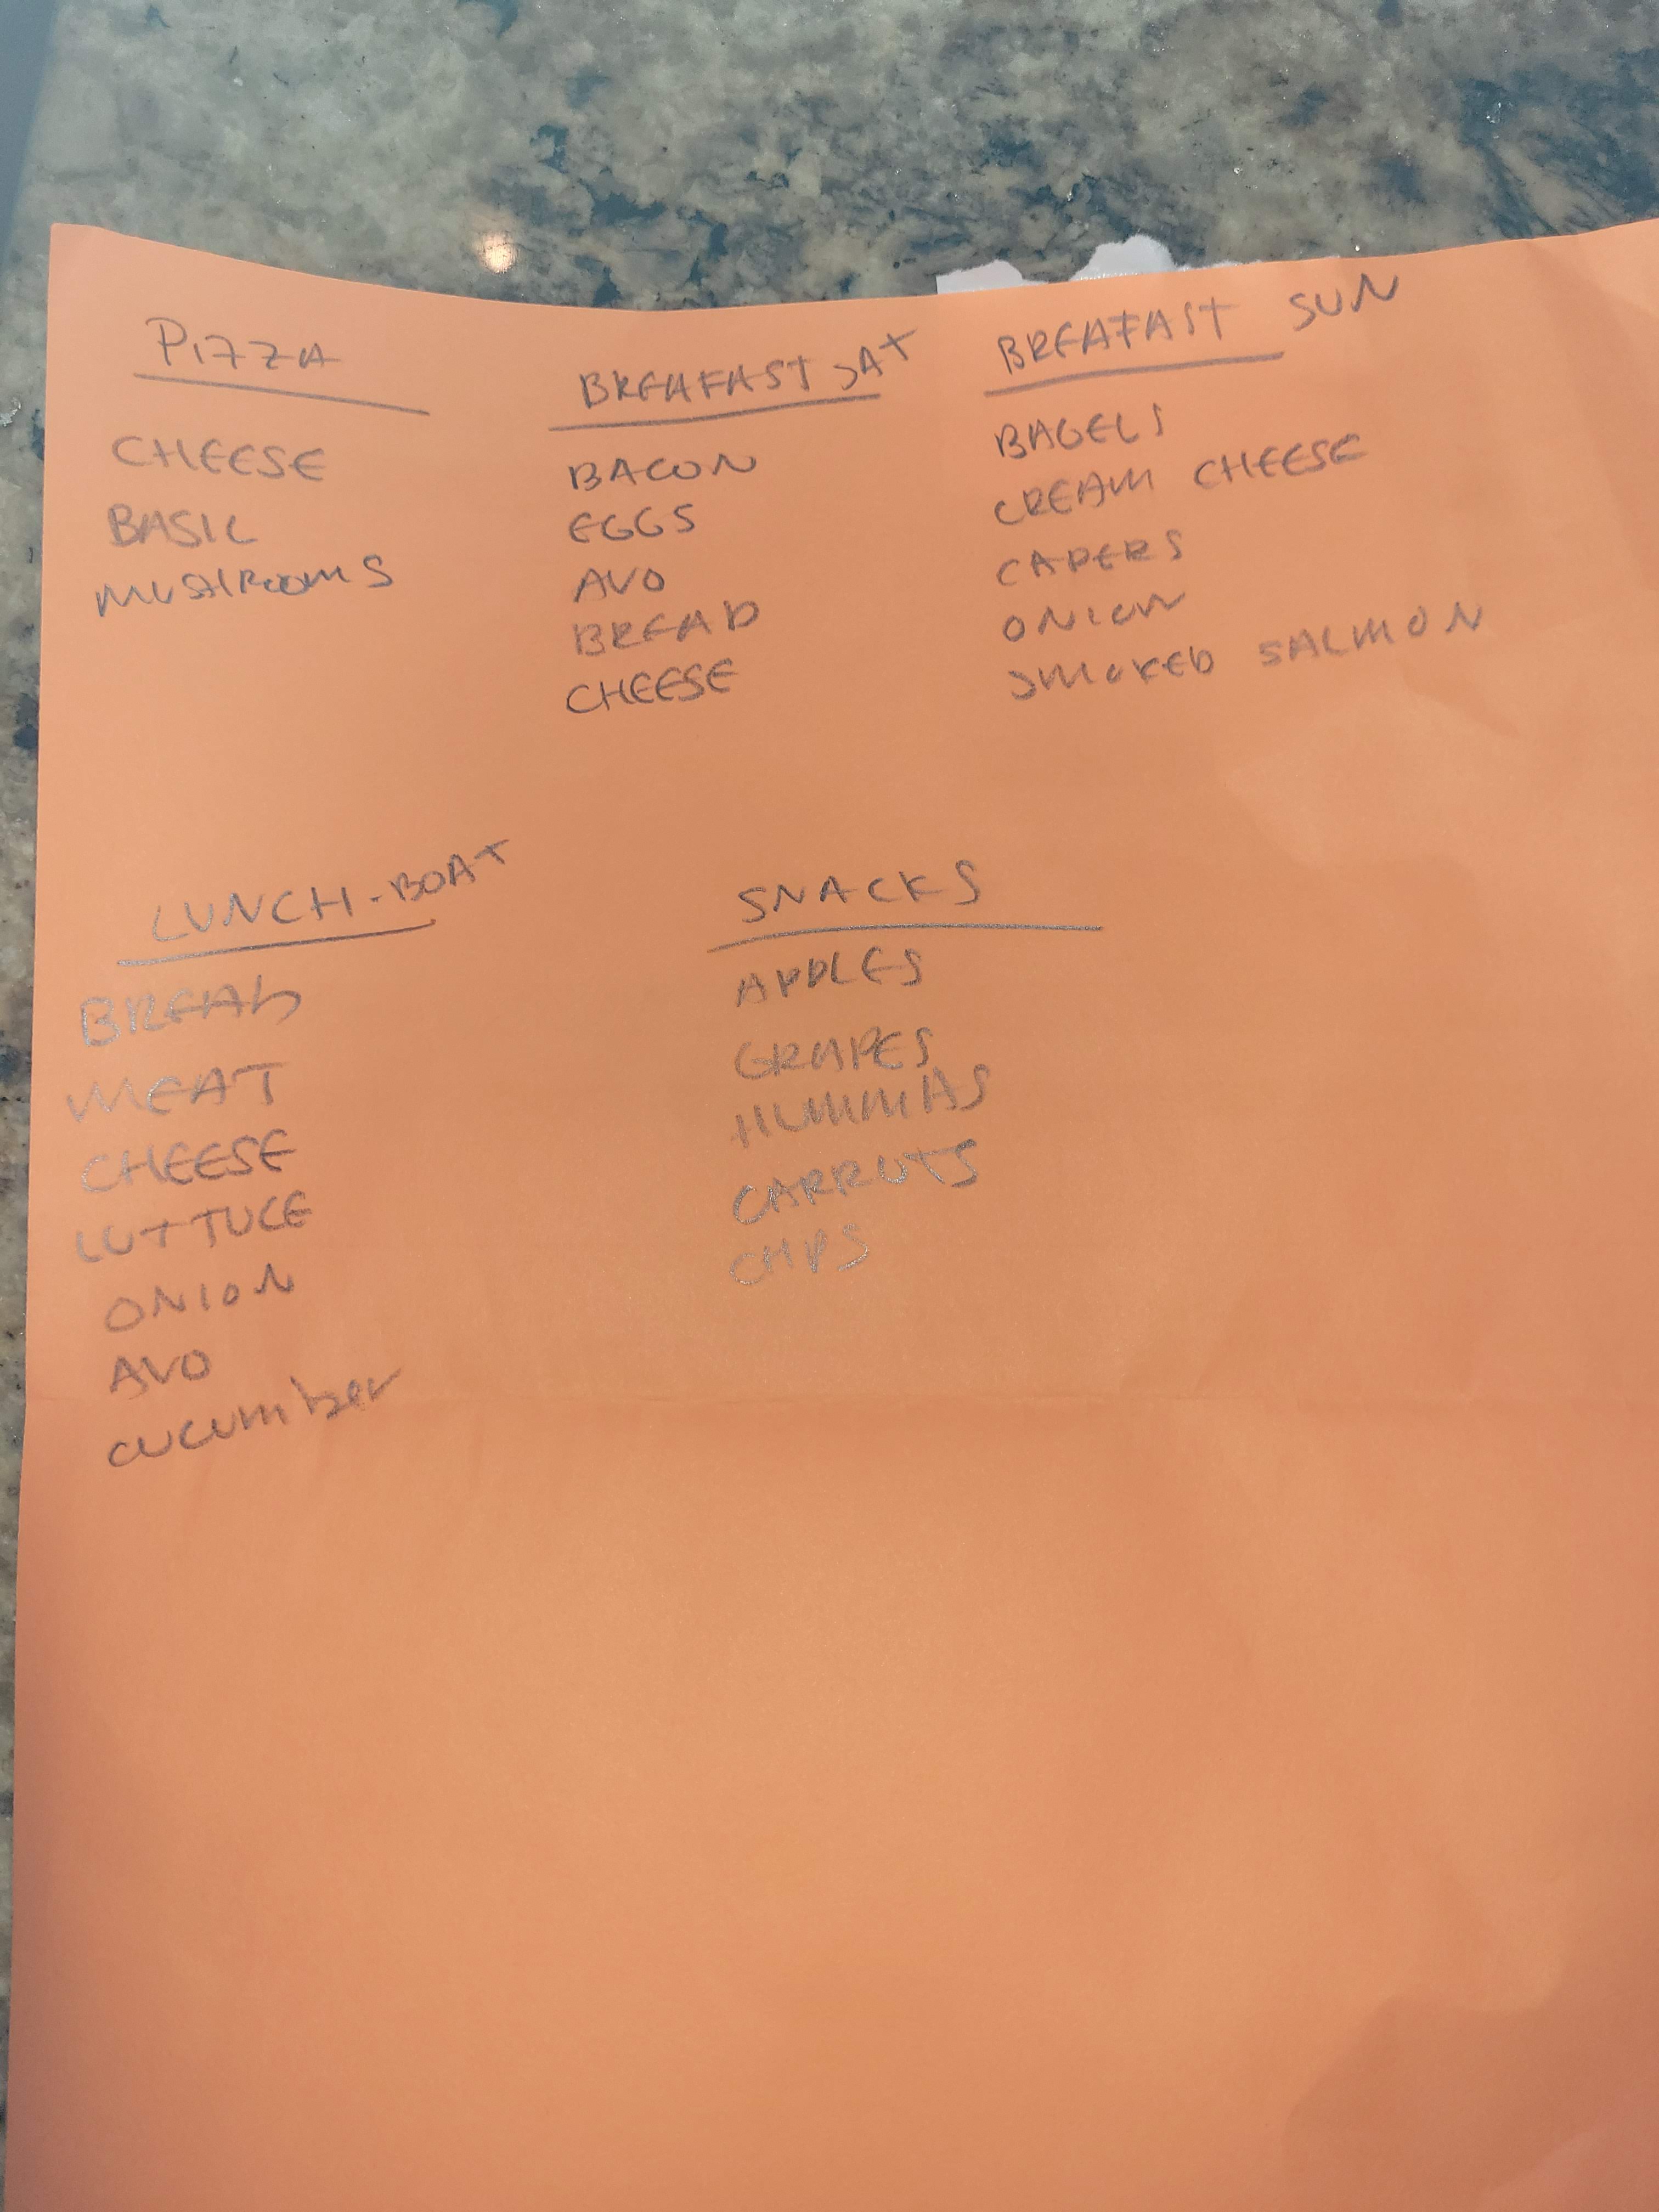 PIZZA
CHEESE
BASIL
MUSHROOMS
BREAFAST SAT
BACON
EGGS
AVO
BREAD
CHEESE
BREAFAST SUN
BAGELS
CREAM CHEESE
CAPERS
ONION
SMOKED SALMON
LUNCH-BOAT
BREAD
MEAT
CHEESE
LUTTUCE
ONION
AVO
cucumber
SNACKS
APPLES
GRAPES
HUMMAS
CARROTS
CHIPS